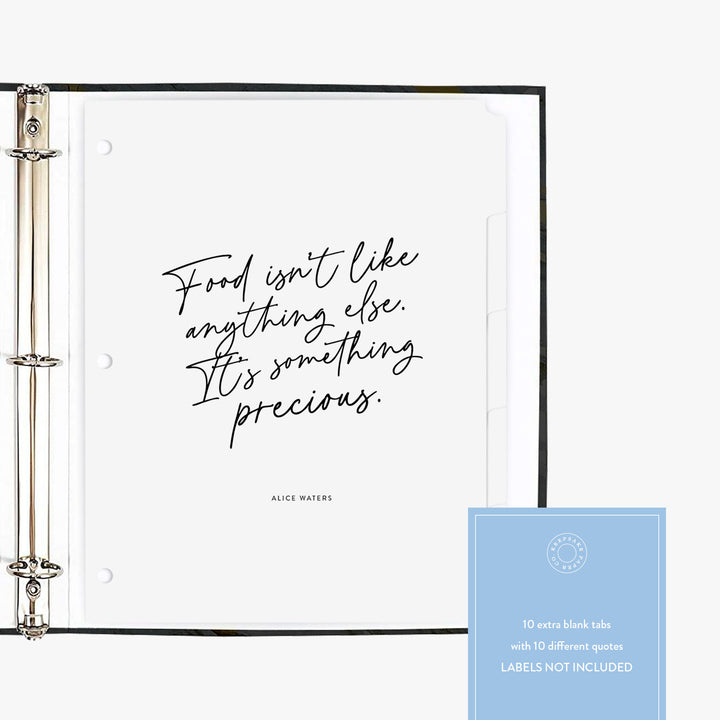 Food isn't like
anything else.
It's something
precious.
ALICE WATERS
KEEPSAKE PAPER CO
10 extra blank tabs
with 10 different quotes
LABELS NOT INCLUDED